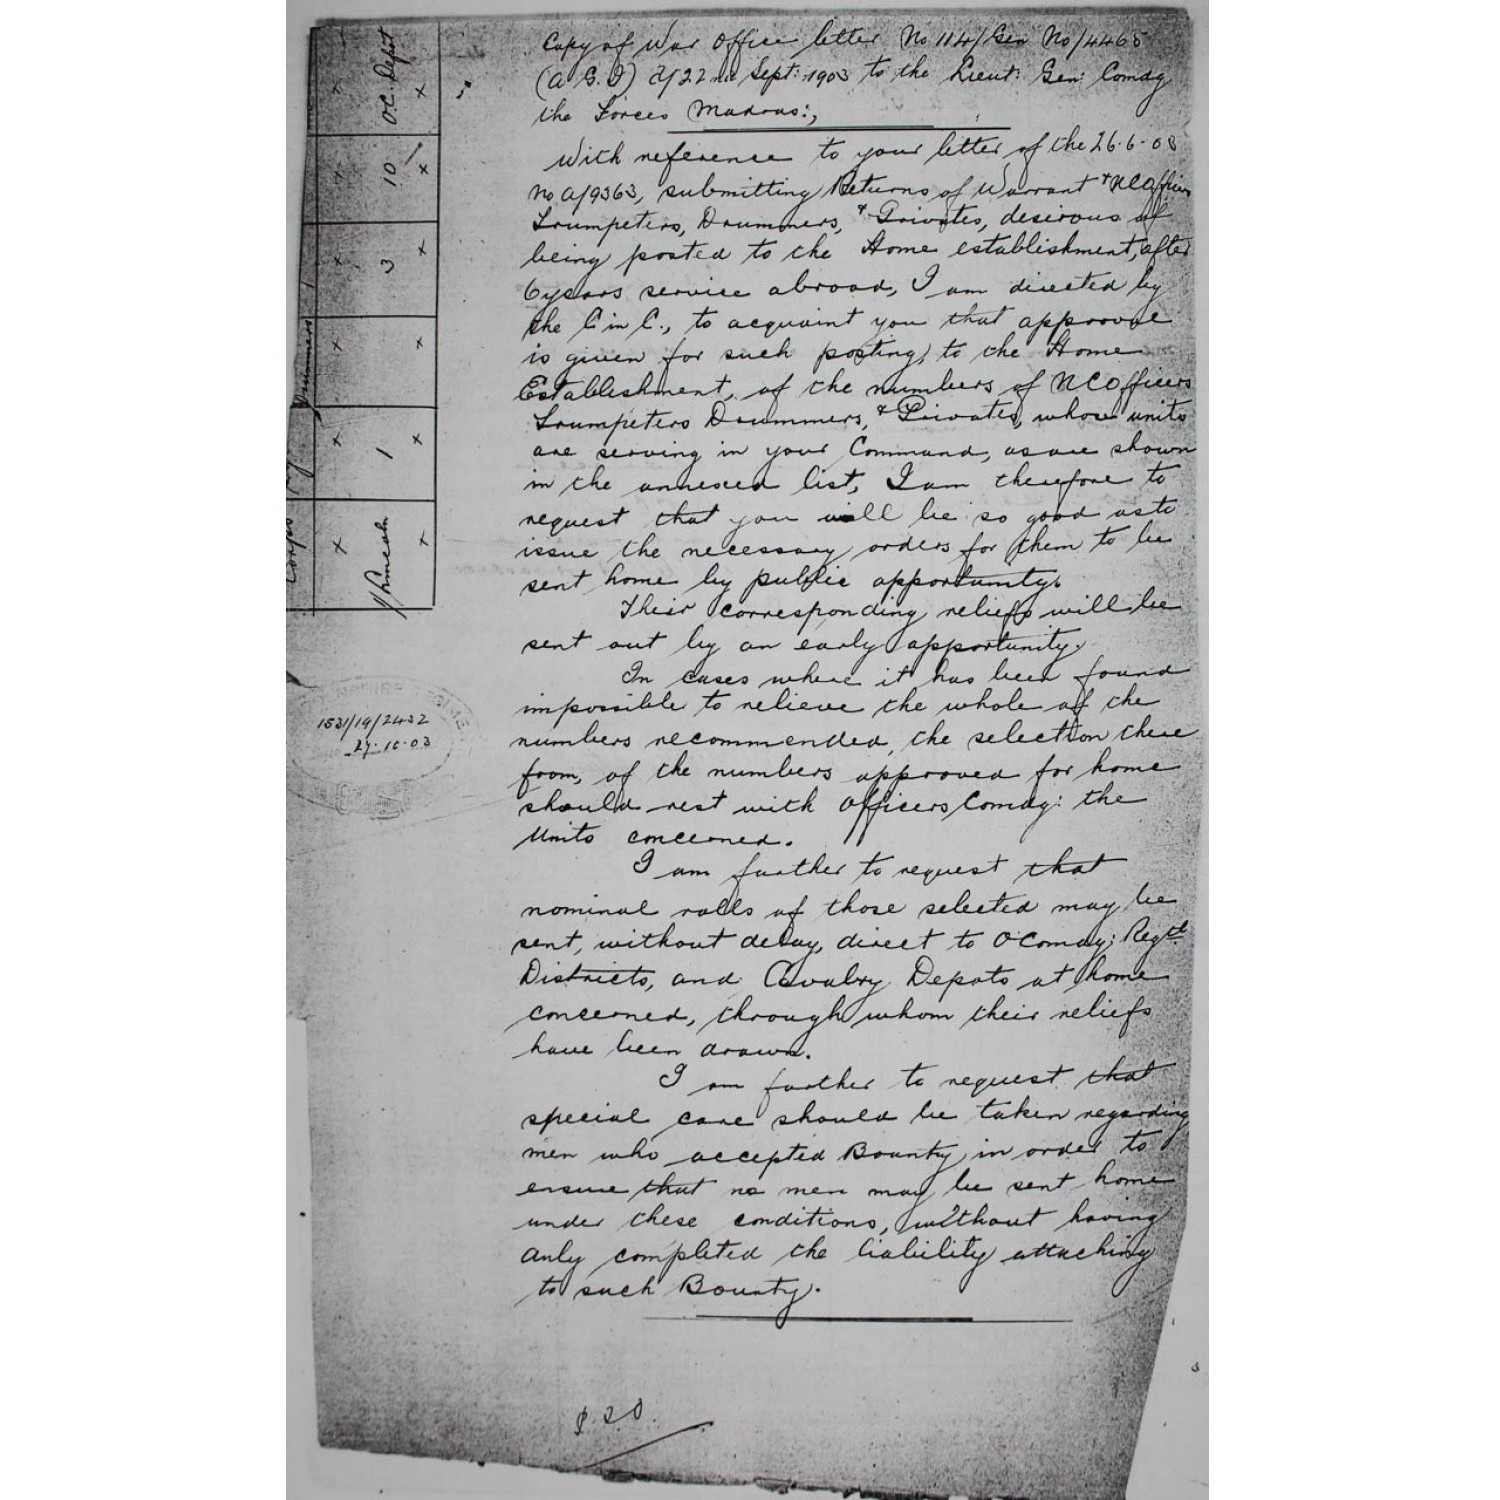 Copy of War Office letter No 114/Gen No/4465
(A.G.2) d/22nd Sept: 1903 to the Lieut: Gen: Comdg
the Forces Madras:,
With reference to your letter of the 26-6-03
No A/9363, submitting Returns of Warrant & NCOfficers
Trumpeters, Drummers, & Privates, desirous of
being posted to the Home establishment, after
6 years service abroad, I am directed by
the C in C., to acquaint you that approval
is given for such posting, to the Home
Establishment, of the numbers of NCOfficers
Trumpeters Drummers, & Privates, whose units
are serving in your Command, as are shown
in the annexed list, I am therefore to
request that you will be so good as to
issue the necessary orders for them to be
sent home by public opportunity.
Their corresponding reliefs will be
sent out by an early opportunity.
In cases where it has been found
impossible to relieve the whole of the
numbers recommended, the selection there
from, of the numbers approved for home
should rest with Officers Comdg: the
Units concerned.
I am further to request that
nominal rolls of those selected may be
sent, without delay, direct to O Comdg: Regtl
Districts, and Cavalry Depots at home
concerned, through whom their reliefs
have been drawn.
I am further to request that
special care should be taken regarding
men who accepted Bounty, in order to
ensure that no men may be sent home
under these conditions, without having
duly completed the liability attaching
to such Bounty.
1531/19/2432
27-10-03
Corps
Drummers
1 3 10 O.C. Depot